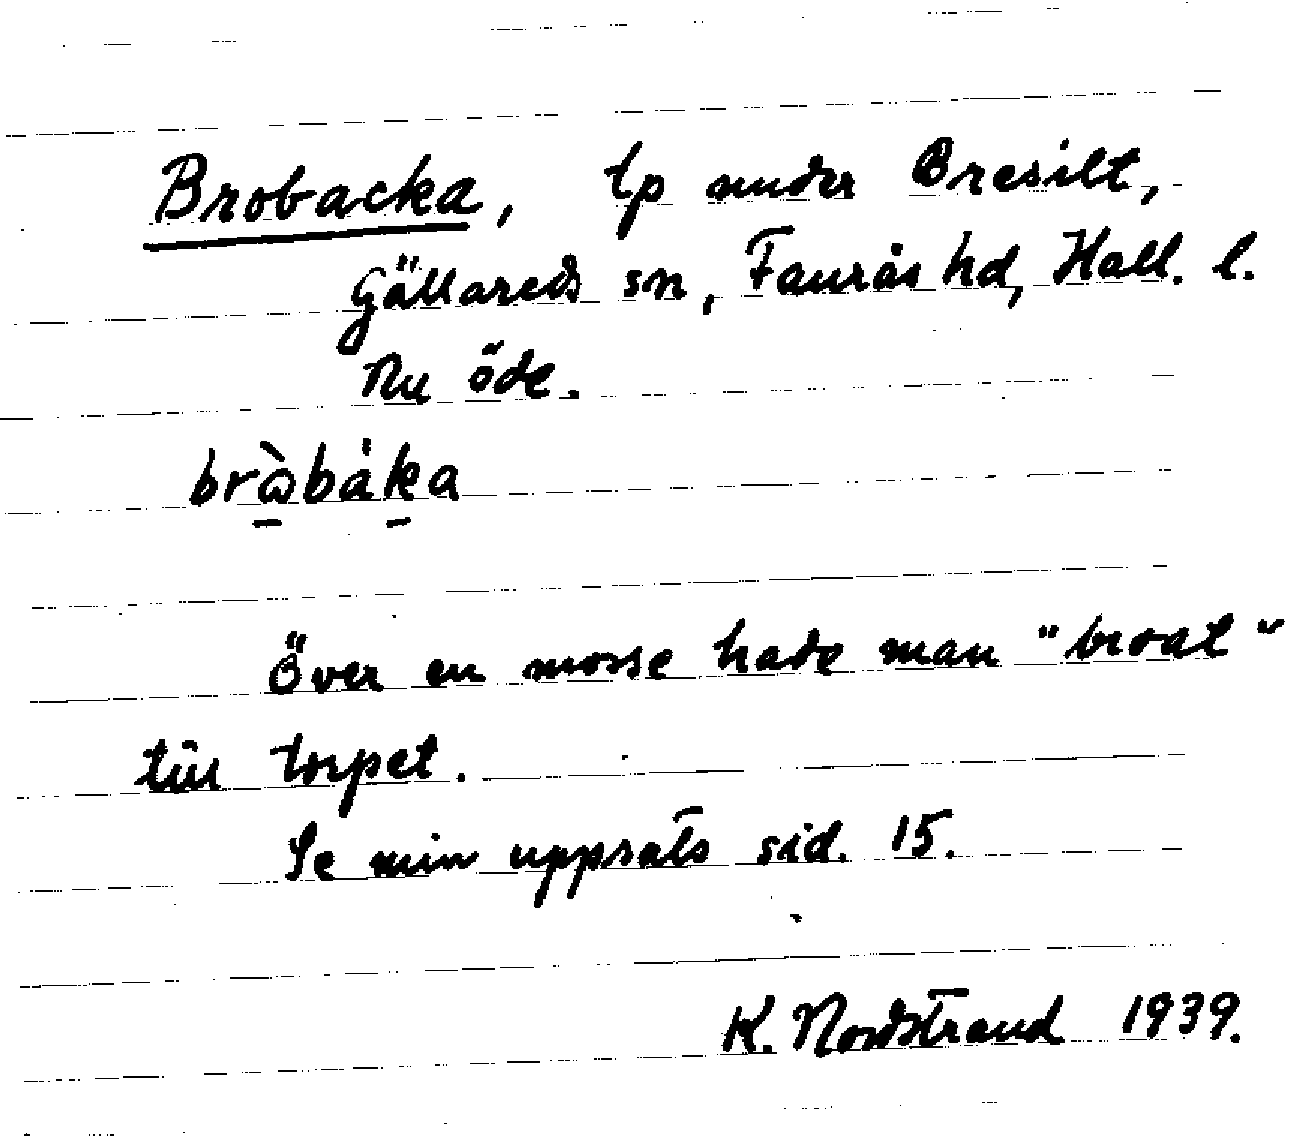 Brobacka, tp under Bresilt,
Gällareds sn, Faurås hd, Hall. l.
Nu öde.
brὼbȧka
Över en mosse hade man "broat"
till torpet.
Se min uppsats sid. 15.
K. Nordstrand 1939.